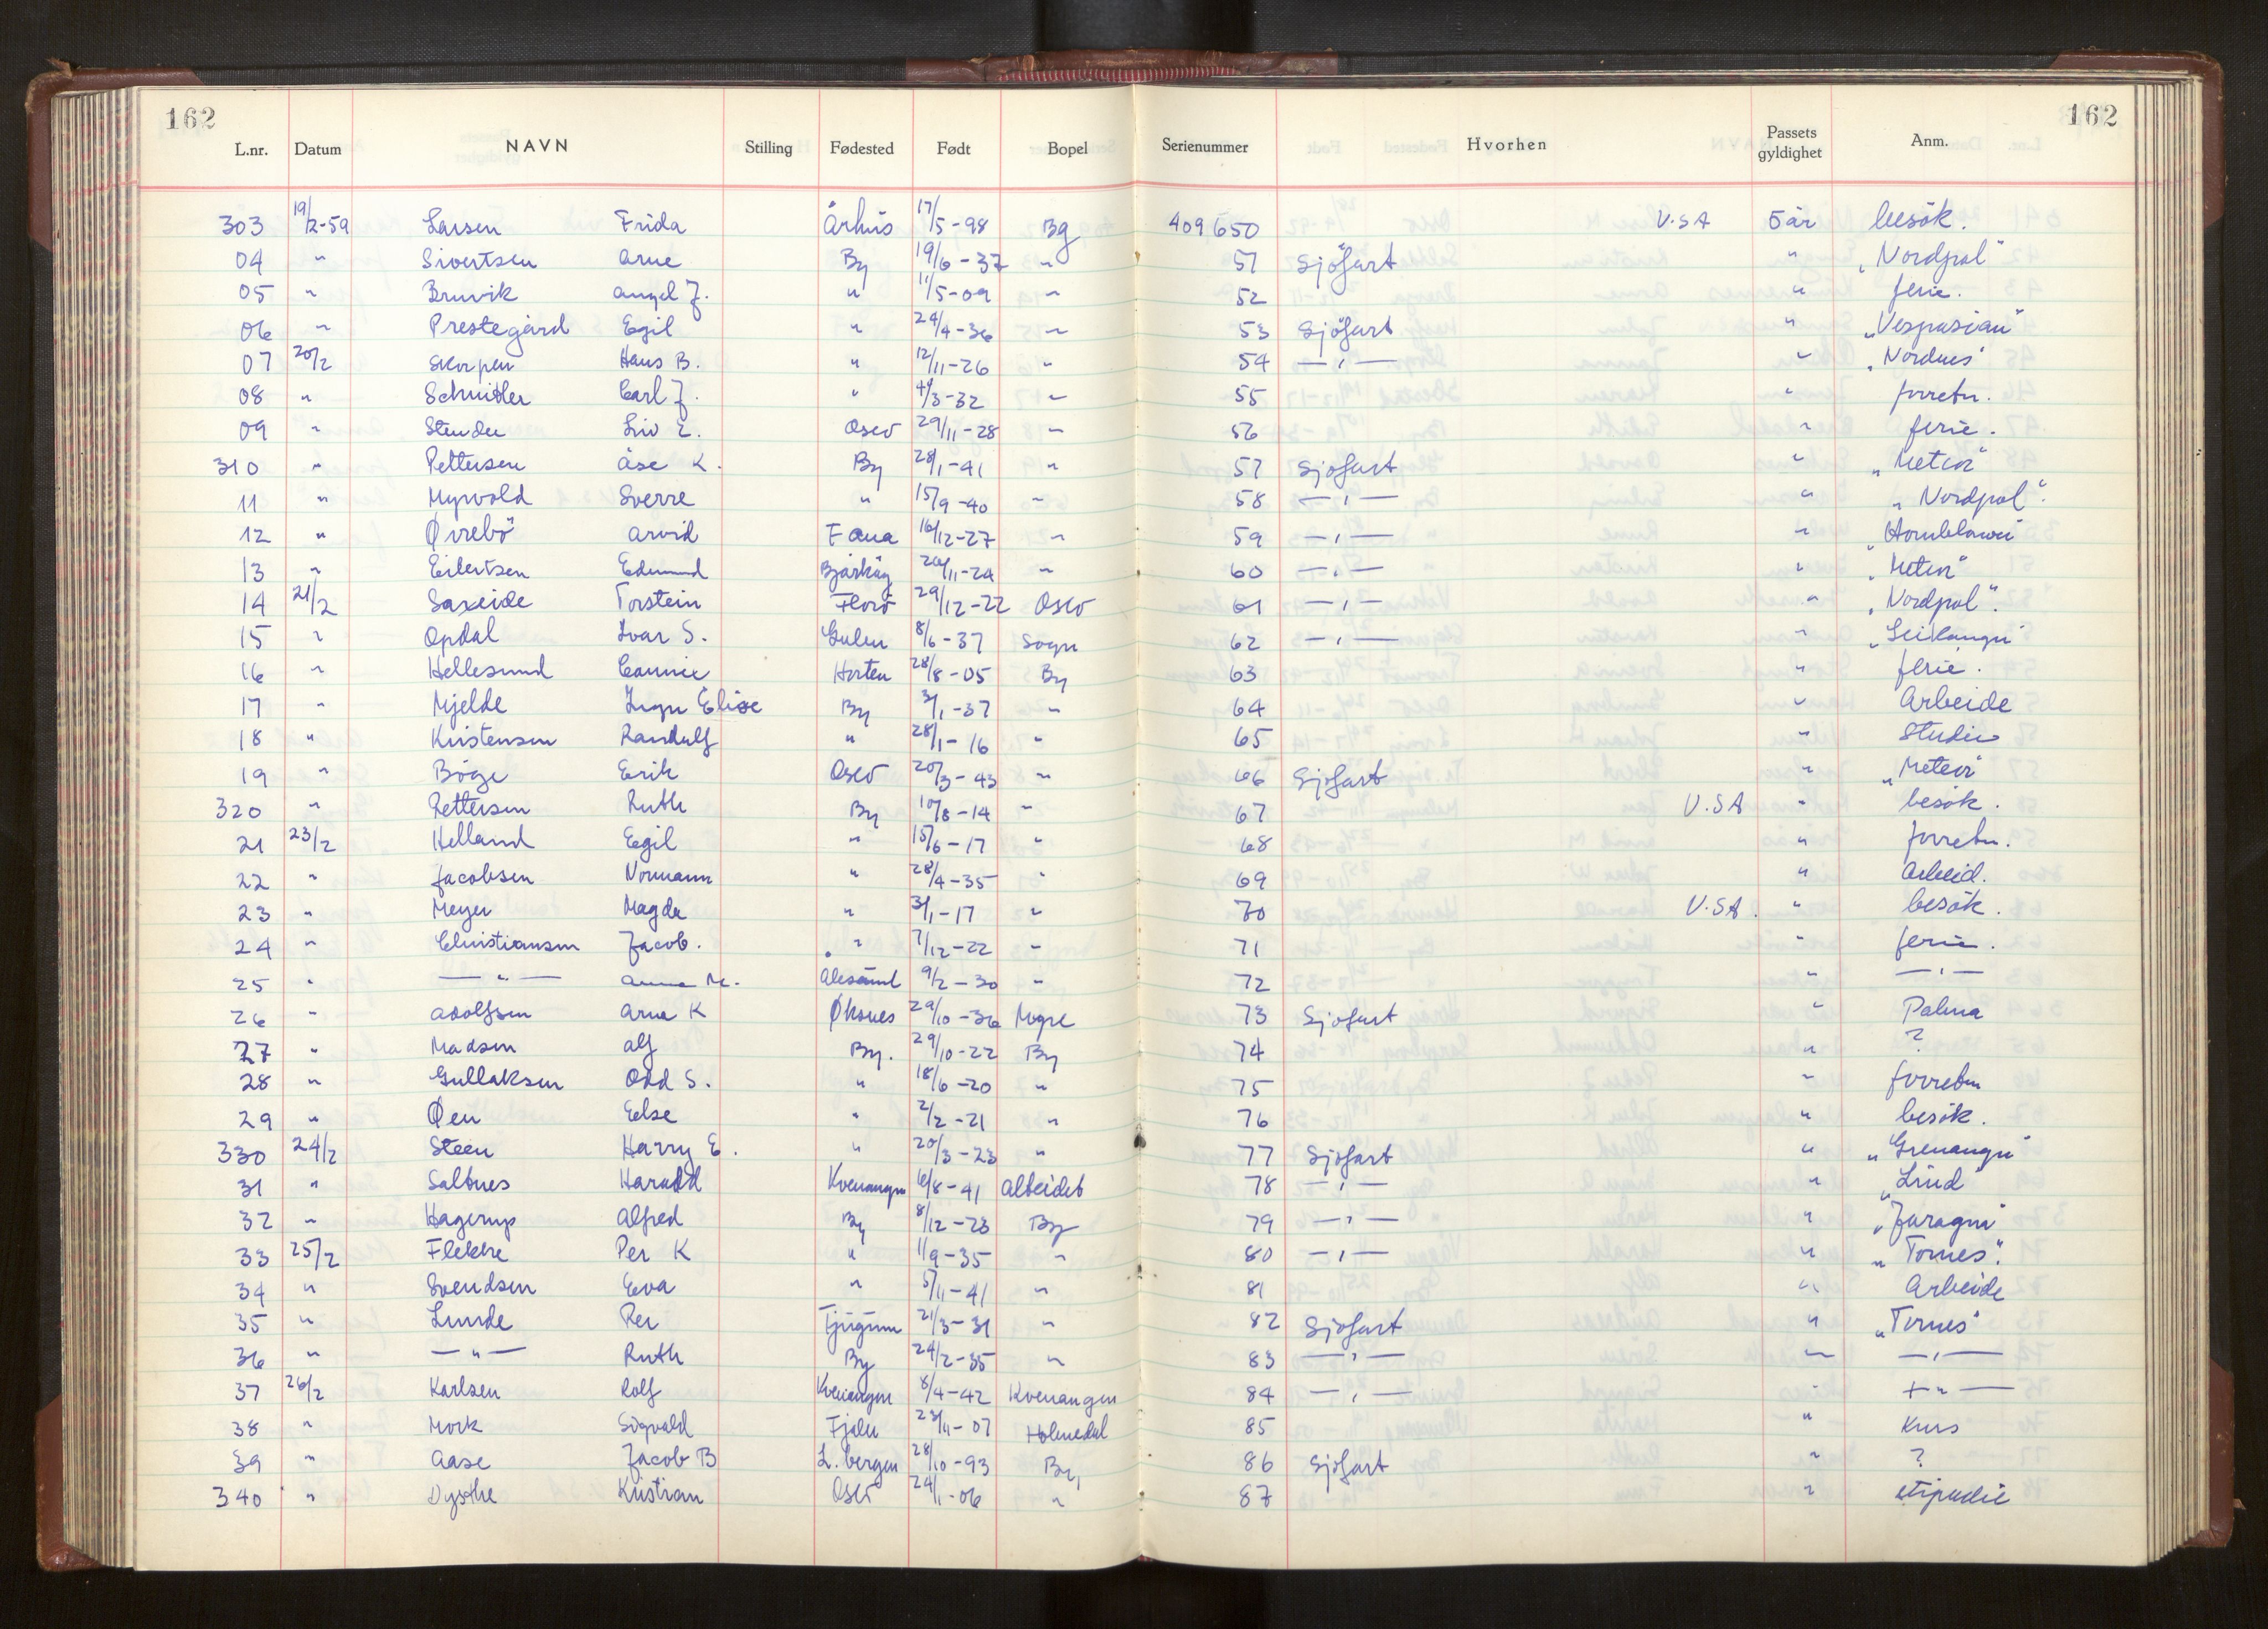 162 162
L.nr. Datum NAVN Stilling Fødested Født Bopel Serienummer Hvorhen Passets gyldighet Anm.
303 19/2-59 Larsen Frida Århus 17/5-98 Bg 409650 U.S.A 5 år besök.
04 " Sivertsen Arne By 19/6-37 " 51 Sjöfart "Nordpol"
05 " Bruvik Angel J. " 11/5-09 " 52 " ferie.
06 " Prestegård Egil " 24/4-36 " 53 Sjöfart " "Vespasian"
07 20/2 Skorpen Hans B. " 12/11-26 " 54 —"— " "Nordnes"
08 " Schnitler Carl J. " 4/3-32 " 55 " forretn.
09 " Stender Liv E. Oslo 29/11-28 " 56 " ferie.
310 " Pettersen Åse K. By 28/1-41 " 57 Sjöfart " "Meteor"
11 " Myrvold Sverre " 15/9-40 " 58 —"— " "Nordpol".
12 " Øvrebö Arvid Fana 16/12-27 " 59 —"— "
13 " Eilertsen Edmund Bjarköy 20/11-24 " 60 —"— " "Meteor"
14 21/2 Saxeide Torstein Florö 29/12-22 Oslo 61 —"— " "Nordpol".
15 " Opdal Ivar S. Gulen 8/6-37 Sogn 62 —"— " "Leikanger"
16 " Hellesund Horten 28/8-05 By 63 " ferie.
17 " Mjelde Elise By 3/1-37 " 64 " Arbeide
18 " Kristensen Randulf " 28/1-16 " 65 " Studie
19 " Böge Erik Oslo 20/3-43 " 66 Sjöfart " "Meteor"
320 " Pettersen Ruth By 10/8-14 " 67 U.S.A " besök.
21 23/2 Helland Egil " 15/6-17 " 68 " forretn.
22 " Jacobsen Normann " 28/4-35 " 69 " Arbeid.
23 " Meyer Magda " 3/1-17 " 70 U.S.A. " besök.
24 " Christiansen Jacob. " 7/12-22 " 71 " ferie.
25 " —"— Anna M. Ålesund 9/2-30 " 72 " —"—
26 " Adolfsen Arne K Øksnes 29/10-36 Myre 73 Sjöfart " Palma
27 " Madsen Alf By. 29/10-22 By 74 " ?
28 " Gullaksen Odd S. " 18/6-20 " 75 " forretn
29 " Øen Else " 2/2-21 " 76 " besök.
330 24/2 Steen Harry E. " 20/3-23 " 77 Sjöfart " "Grenanger"
31 " Saltnes Harald Kvenangen 6/8-41 Alteidet 78 —"— " "Lind
32 " Hagerup Alfred By 8/12-23 By 79 —"— "
33 25/2 Flekke Per K " 1/9-35 " 80 —"— " "Tornes".
34 " Svendsen Eva " 5/11-41 " 81 " Arbeide
35 " Lunde Per Tjugum 21/3-31 " 82 Sjöfart " "Tornes"
36 " —"— Ruth By 24/2-35 " 83 —"— " —"—
37 26/2 Karlsen Rolf Kvenangen 8/4-42 Kvenangen 84 —"— " —"—
38 " Mork Sigvald Fjaler 23/11-07 Holmedal 85 " Kurs
39 " Aase Jacob B L.bergen 28/10-93 By, 86 Sjöfart " ?
340 " Dysthe Kristian Oslo 24/1-06 " 87 "